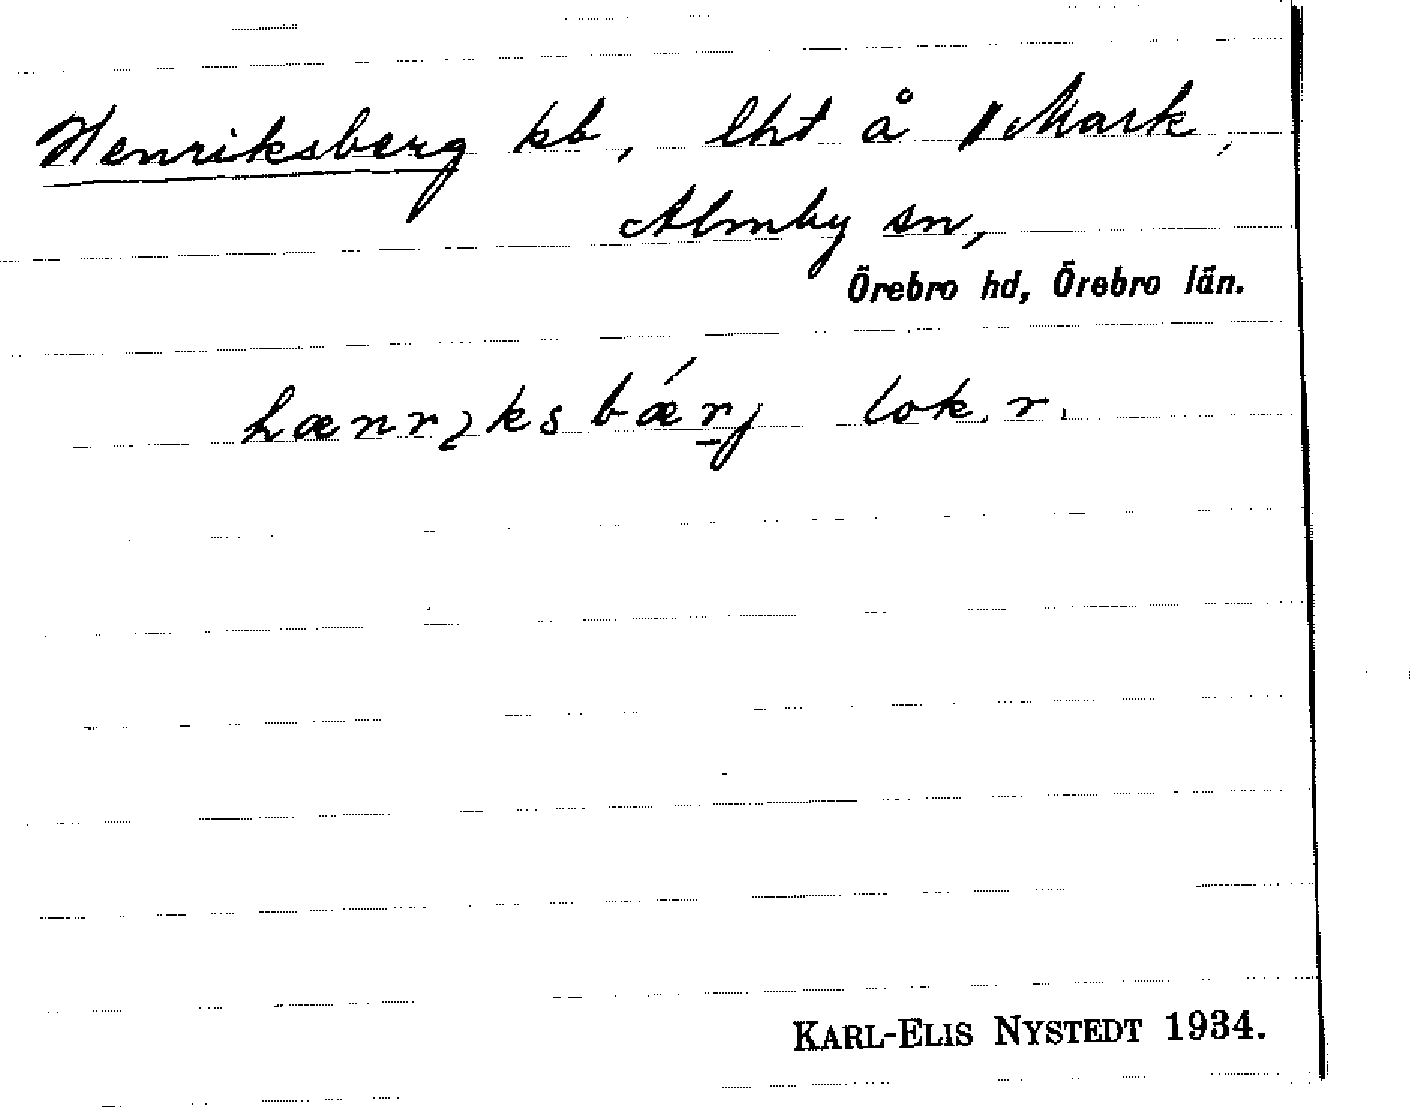 Henriksberg kb, lht å Mark,
Almby sn,
Örebro hd, Örebro län.
hænrıksbǽrj lok. r.
KARL-ELIS NYSTEDT 1934.